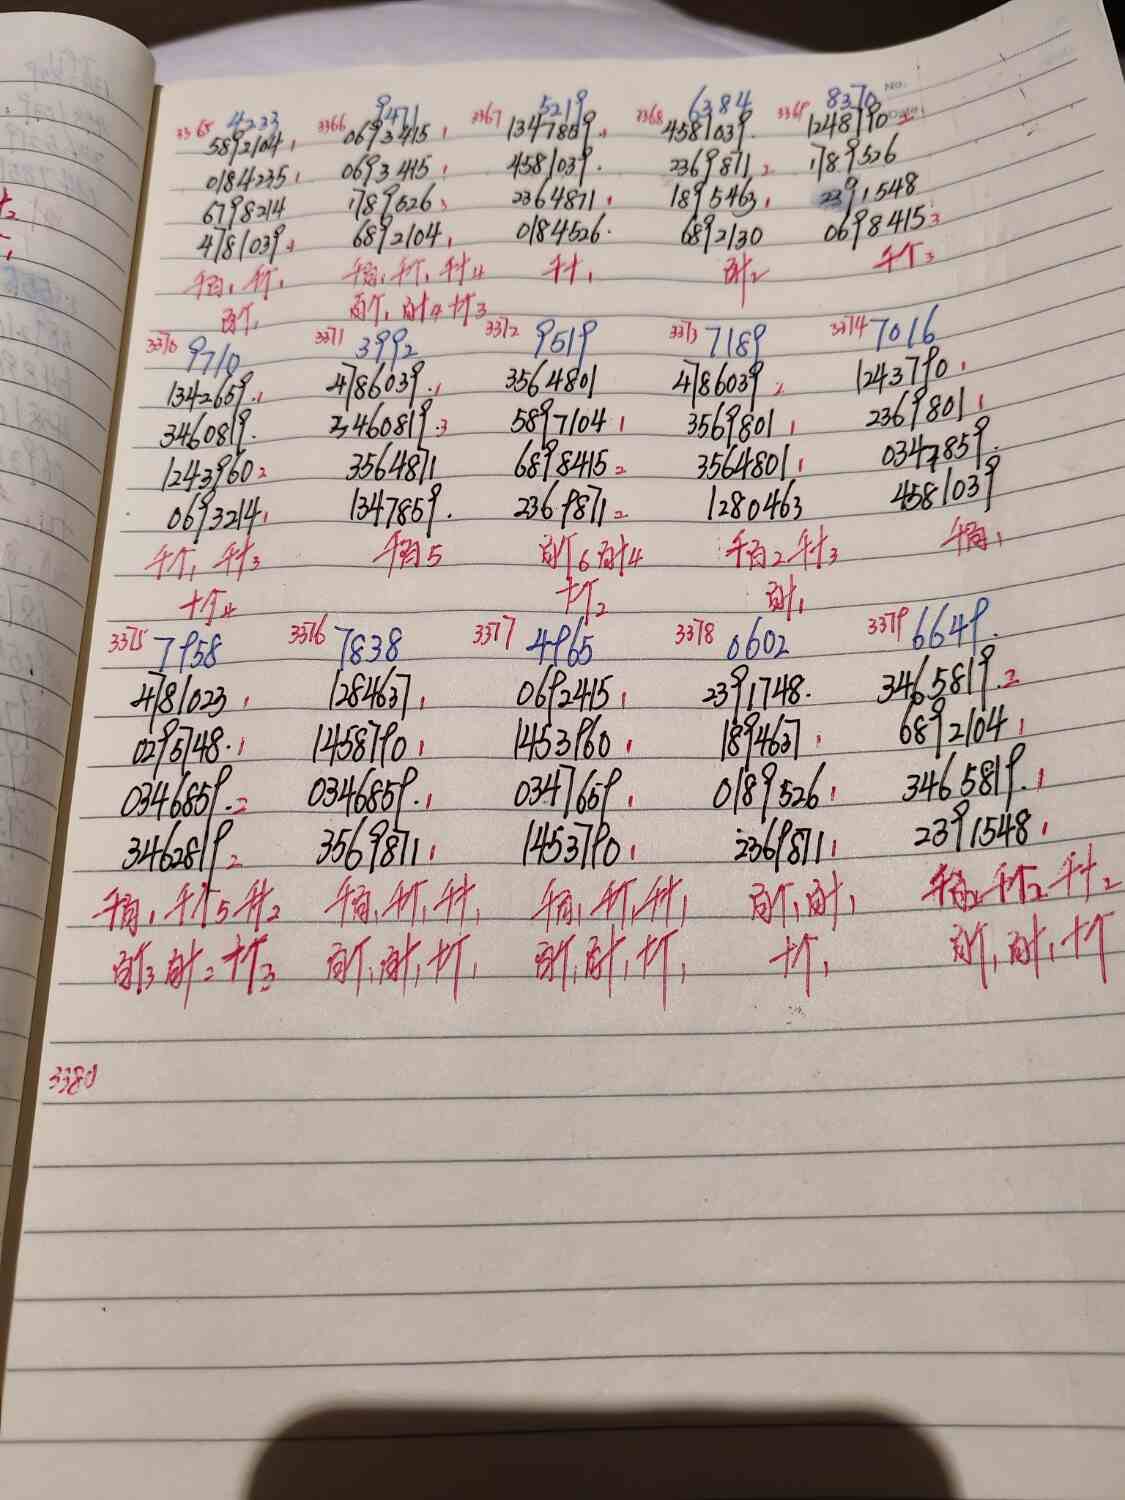 3365 4233 3366 9471 3367 5219 3368 6384 3369 8370 No.
5892104 1 0693415 1 1347859 4581039 1248790 2
0184235 1 0693415 1 4581039 2369871 2 1789526
6798214 1789526 3 2364871 1 1895463 1 2391548
4781039 6892104 1 0184526 6892130 0698415 3
千百1 千个1 千百1 千个1 千十4 千十1 百十2 千个3
百个1 百个1 百十4 十个3
3370 9710 3371 3992 3372 9519 3373 7189 3374 7016
1342659 1 4786039 1 3564801 4786039 2 1243790 1
3460819 23460819 3 5897104 1 3569801 1 2369801 1
1243960 2 3564871 6898415 2 3564801 1 0347859
0693214 1 1347859 2369871 2 1280463 4581039
千个1 千十3 千百5 百个6 百十4 千百2 千十3 千百1
十个4 十个2 百十1
3375 7958 3376 7838 3377 4965 3378 0602 3379 6649
4781023 1 1284637 1 0692415 1 2391748 3465819 2
0295748 1 1458790 1 1453960 1 1894637 1 6892104 1
0346859 2 0346859 1 0347659 1 0189526 1 3465819 1
3462819 2 3569871 1 1453790 1 2369871 1 2391548 1
千百1 千个5 千十2 千百1 千个1 千十1 千百1 千个1 千十1 百个1 百十1 千百2 千个2 千十2
百个3 百十2 十个3 百个1 百十1 十个1 百个1 百十1 十个1 十个1 百个1 百十1 十个
3380